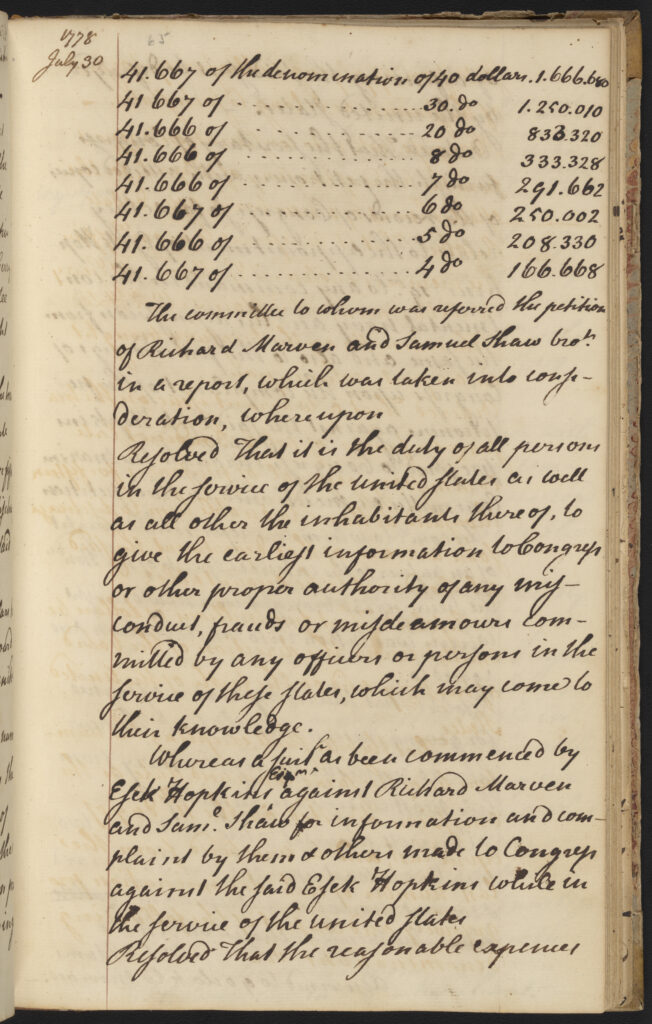 1778
65
July 30
41.667 of the denomination of 40 dollars. 1.666.680
41 667 of . . . . . . . . . . . . . . 30. do 1.250.010
41.666 of . . . . . . . . . . . . . . 20 do 833.320
41.666 of . . . . . . . . . . . . . . 8 do 333.328
41.666 of . . . . . . . . . . . . . . 7 do 291.662
41.667 of . . . . . . . . . . . . . . 6 do 250.002
41.666 of . . . . . . . . . . . . . . 5 do 208.330
41.667 of . . . . . . . . . . . . . . 4 do 166.668
The committee to whom was referred the petition
of Richard Marven and Samuel Shaw brot.
in a report, which was taken into consi-
deration, whereupon
Resolved That it is the duty of all persons
in the service of the united states as well
as all other the inhabitants thereof, to
give the earliest information to Congress
or other proper authority of any mis-
conduct, frauds or misdeamours com-
mitted by any officers or persons in the
service of these states, which may come to
their knowledge.
Whereas a suit as been commenced by
Esek Hopkins Esqr. against Richard Marven
and Saml. Shaw for information and com-
plaint by them & others made to Congress
against the said Esek Hopkins while in
the service of the united states
Resolved That the reasonable expences